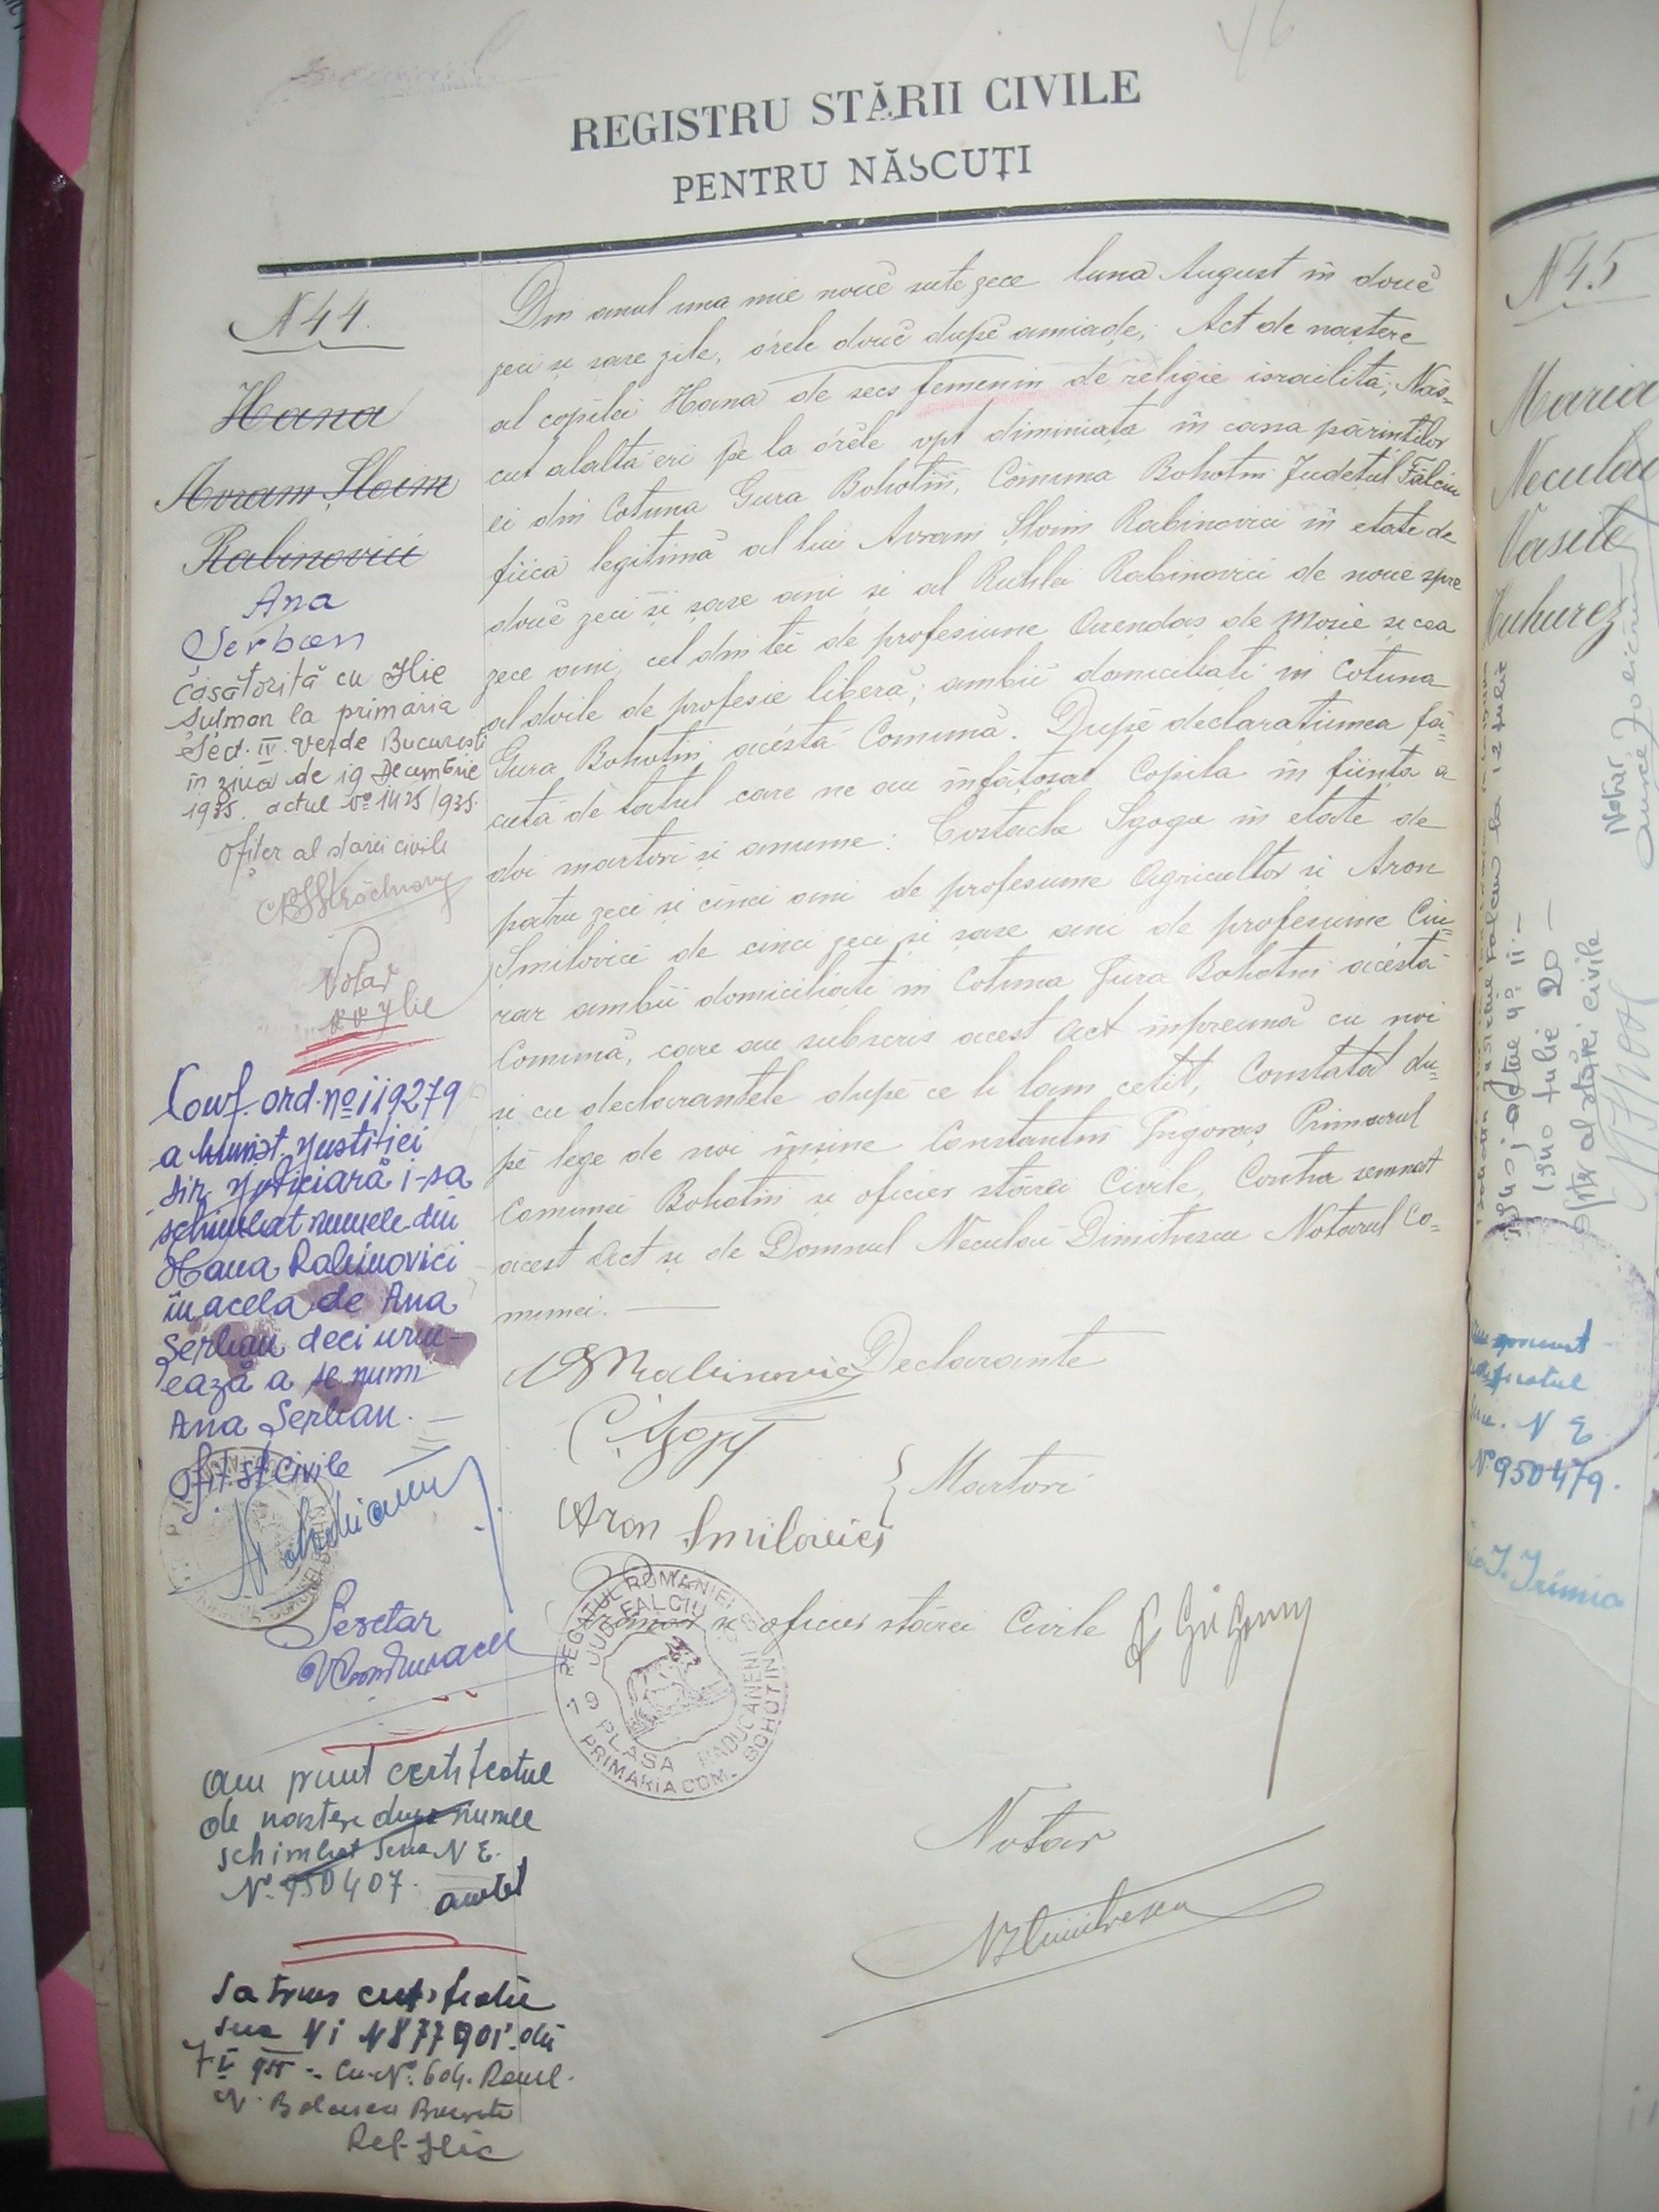 46
REGISTRU STĂRII CIVILE
PENTRU NĂSCUȚI
N 44.
Hana
Avram Șloim
Rabinovici
Ana
Șerban
Căsătorită cu Ilie
Șulman la primăria
Sect. IV. Verde București
în ziua de 19 Decembrie
1935. actul No 1425/935.
Ofițer al stării civile
Notar
Conf. ord. No 119279
a Minist. Justiției
Dir. Judiciară i-sa
schimbat numele din
Hana Rabinovici
în acela de Ana
Șerban deci urm-
ează a se numi
Ana Șerban. —
Ofit. st. civile
Secretar
Am primit certificatul
de naștere după numele
schimbat seria N E.
No. 950407.
Sa trims certificatu
seria Ni N 877901. din
7 V 955 - Cu No. 604. Raiul.
N. Balcescu București
Ref. Ilie
Din anul una mie nouĕ sute zece luna August în douĕ
zeci și șase zile, órele douĕ dupĕ amiaḑe; Act de naștere
al copilei Hana de secs femenin de religie israilită; Năs-
cut alaltă eri pe la órele opt diminiața în casa părinților
ei din Cotuna Gura Bohotin, Comuna Bohotin Județul Fălciu
fiică legitimă al lui Avram Șloim Rabinovici în etate de
douĕ zeci și șase ani și al Ruhlei Rabinovici de nouĕ spre
zece ani, cel dintĕi de profesiune Arendaș de Moșie și cea
al doile de profesie liberă; ambii domiciliați in Cotuna
Gura Bohotin acéstă Comună. Dupĕ declarațiunea fă-
cută de tatul care ne au înfățoșat Copila în ființă a
doi martori și anume: Costache Sgoge în etate de
patru zeci și cinci ani de profesiune Agricultor și Aron
Smilovici de cinci zeci și șase ani de profesiune Ciu-
rar ambii domiciliați in Cotuna Gura Bohotin acéstă
Comună, care au subscris acest Act împreună cu noi
și cu declarantele dupĕ ce li lam cetit, Constatat du-
pĕ lege de noi înșine Constantin Grigoraș Primarul
Comunei Bohotin și oficier stărei Civile, Contra semnat
acest Act și de Domnul Neculai Dimitrescu Notarul Co-
munei. —
Rabinovici Declarante
Martori
Aron Smilovici
Primar și oficier stărei Civile
REGATUL ROMANIEI
JUD. FALCIU
19
PLASA RADUCANENI
PRIMARIA COM. BOHOTIN
Notar
N Dimitrescu
N 45
Maria
Neculai
Vasile
Huhurez
Notar,
1940 Iulie 20 —
Ofițer al stării civile
No. 950479.
I. Irimia